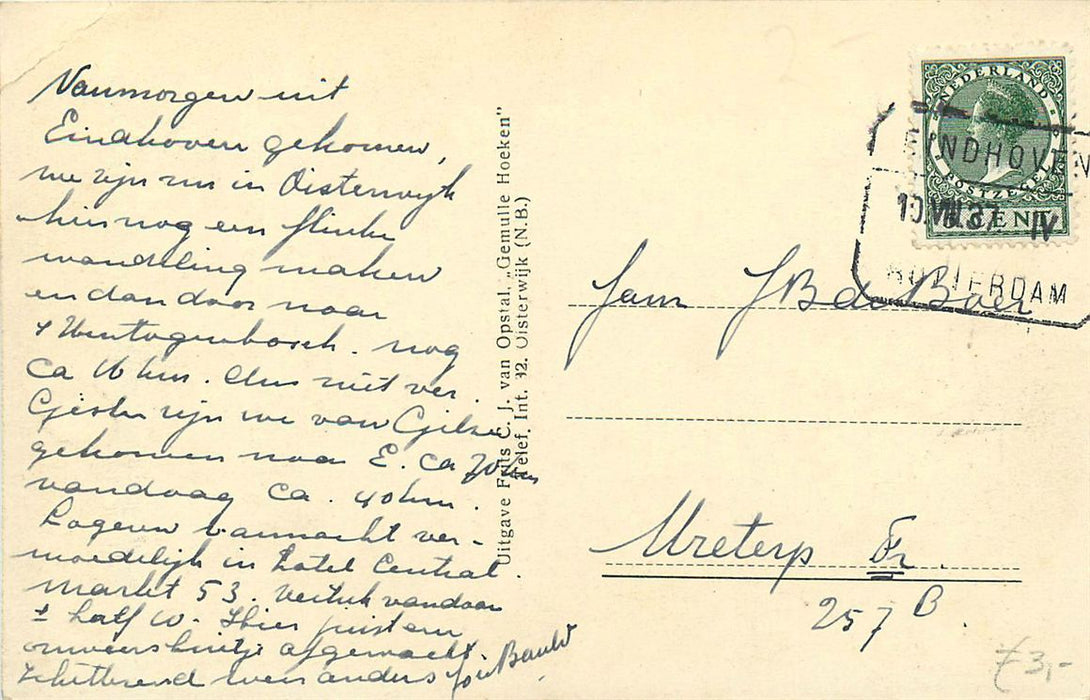 Vanmorgen uit
Eindhoven gekomen,
we zijn nu in Oisterwijk
hier nog een flinke
wandeling maken
en dan door naar
's Hertogenbosch. nog
Ca 16 km. Dus niet ver.
Gister zijn we van Gilze
gekomen naar E. Ca 70 km
vandaag Ca. 40 km.
Logeeren vannacht ver-
moedelijk in hotel Central.
markt 53. Vertrek vandaar
± half 10. Hier juist een
onweersbuitje afgewacht.
Schitterend weer anders
Uitgave Frits C. J. van Opstal, „Gemulle Hoeken"
Telef. Int. 12. Oisterwijk (N.B.)
NEDERLAND
POSTZEGEL
CENT
EINDHOVEN
10.VIII.37. IV
ROTTERDAM
Fam J B de Boer
Ureterp Fr.
257 B
£ 3,-